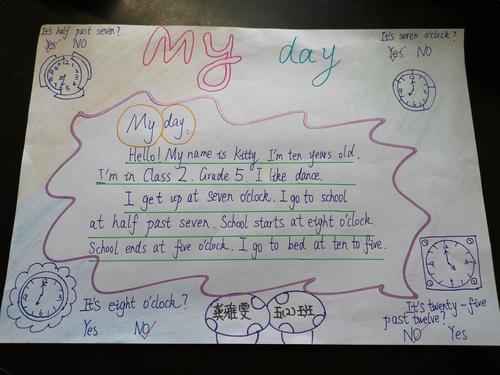 It's half past seven?
Yes NO
My day
It's seven o'clock?
Yes NO
My day.
Hello! My name is Kitty. I'm ten years old.
I'm in Class 2. Grade 5. I like dance.
I get up at seven o'clock. I go to school
at half past seven. School starts at eight o'clock.
School ends at five o'clock. I go to bed at ten to five.
It's eight o'clock?
Yes NO
龚雅雯
五(2)班
It's twenty-five
past twelve?
NO Yes